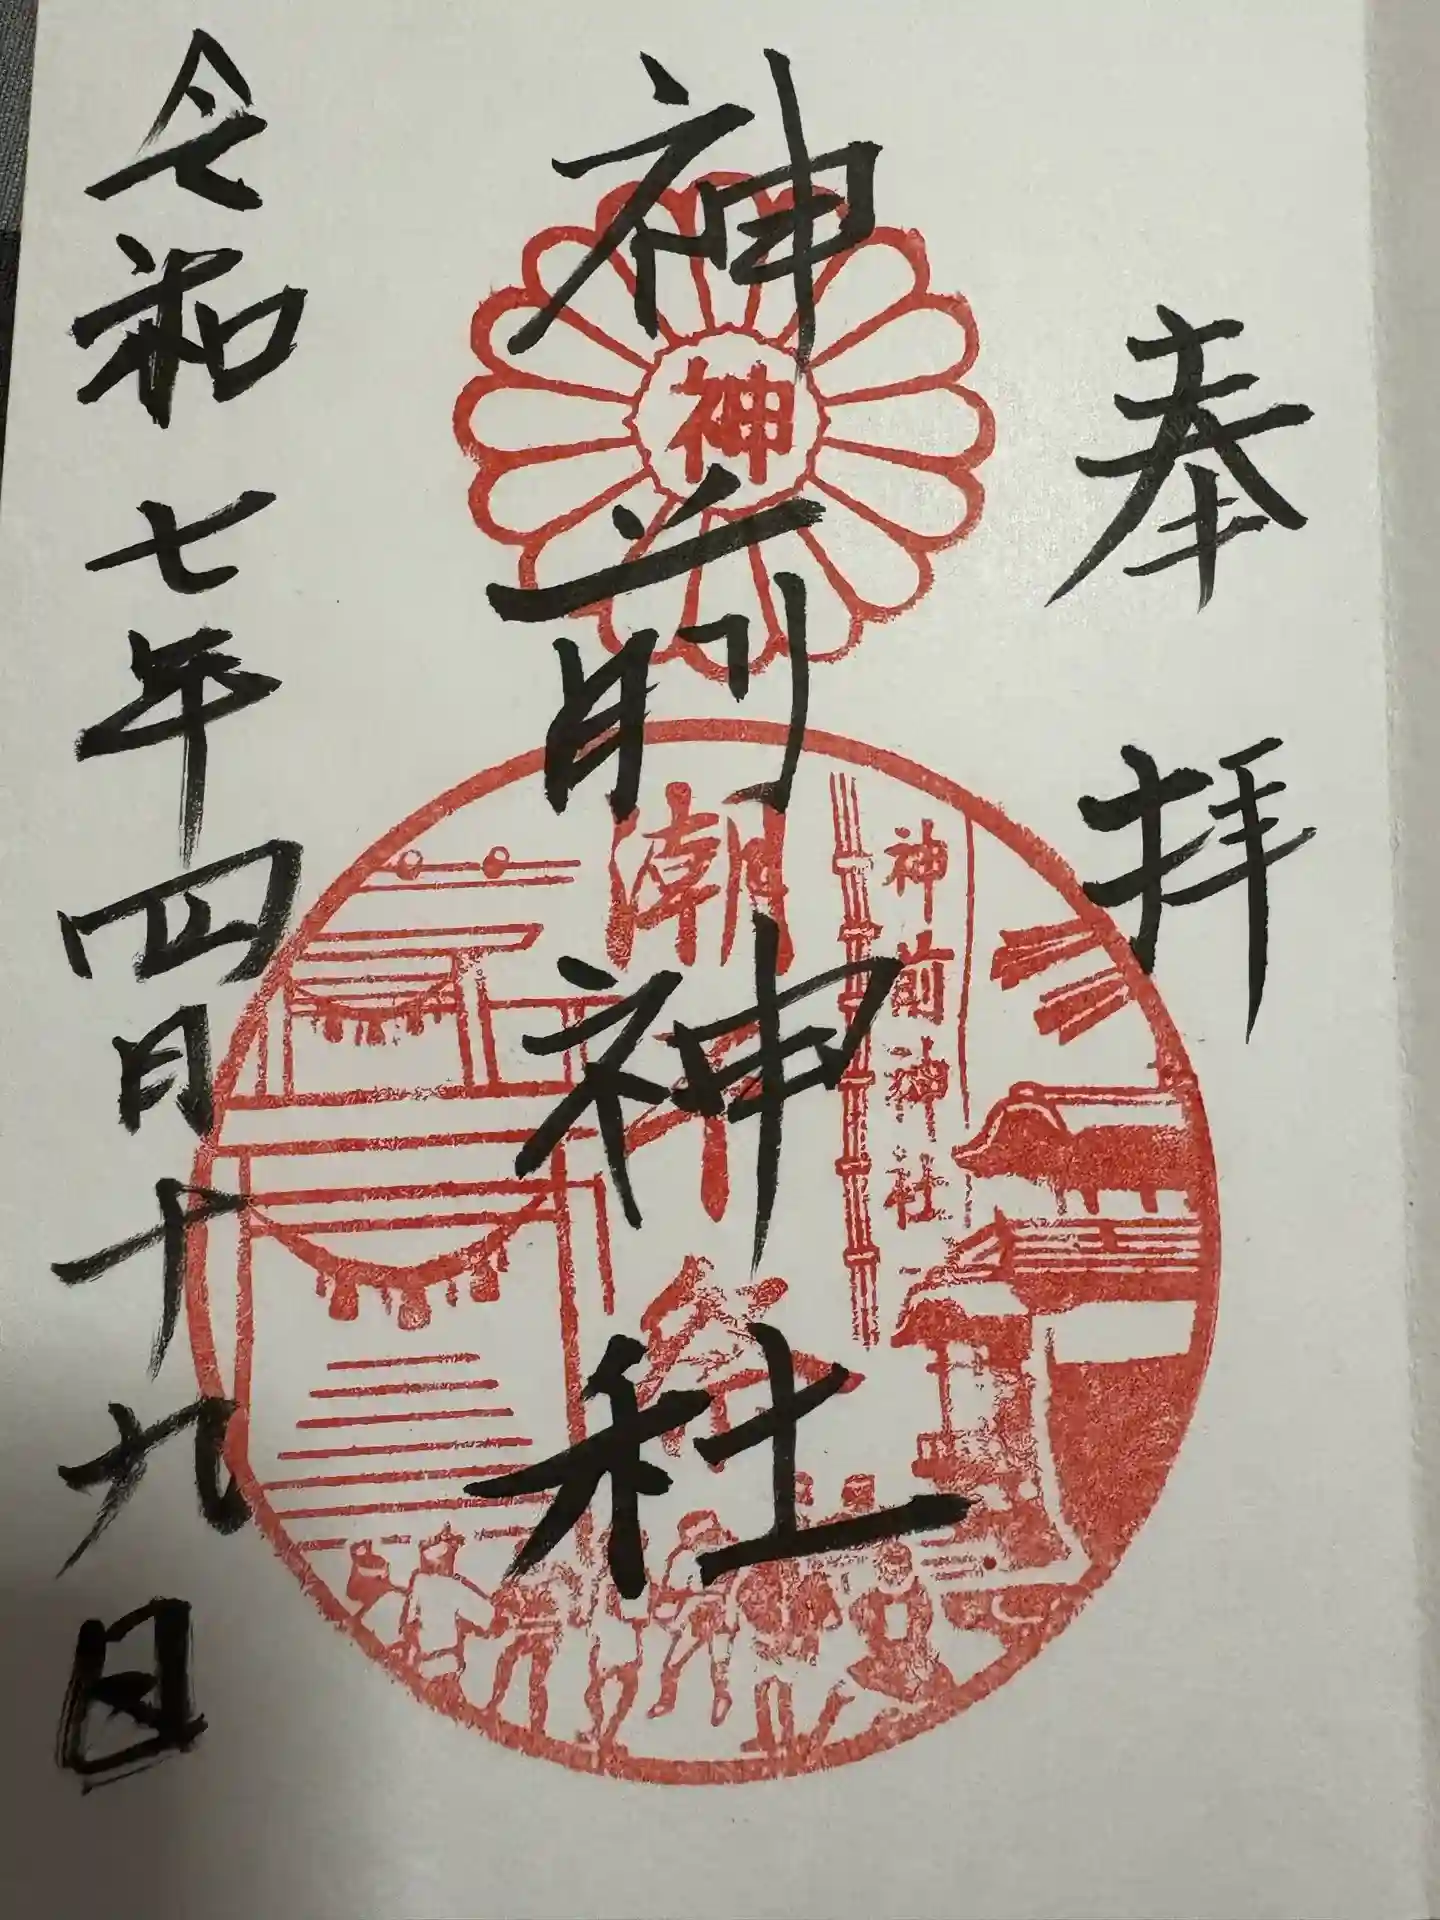 奉拝
神前神社
令和七年四月十九日
神
潮
神前神社